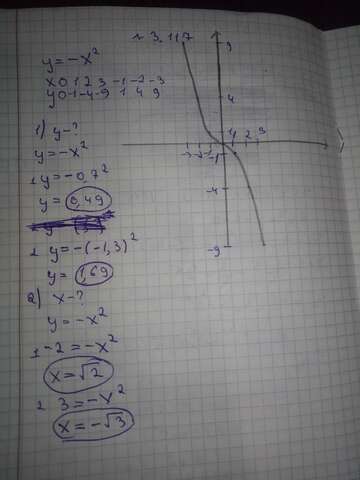 n 3.117
y = -x²
x 0 1 2 3 -1 -2 -3
y 0 -1 -4 -9 1 4 9
1) y-?
y = -x²
1 y = -0,7²
y = 0,49
2 y = -(-1,3)²
y = 1,69
2) x-?
y = -x²
1 -2 = -x²
x = √2
2 3 = -x²
x = -√3
9
4
1 2 3
-1
-4
-9